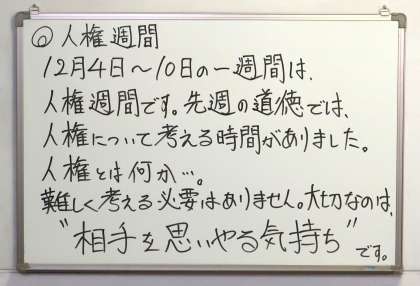 ◎人権週間
12月4日〜10日の一週間は、
人権週間です。先週の道徳では、
人権について考える時間がありました。
人権とは何か…。
難しく考える必要はありません。大切なのは、
"相手を思いやる気持ち"です。